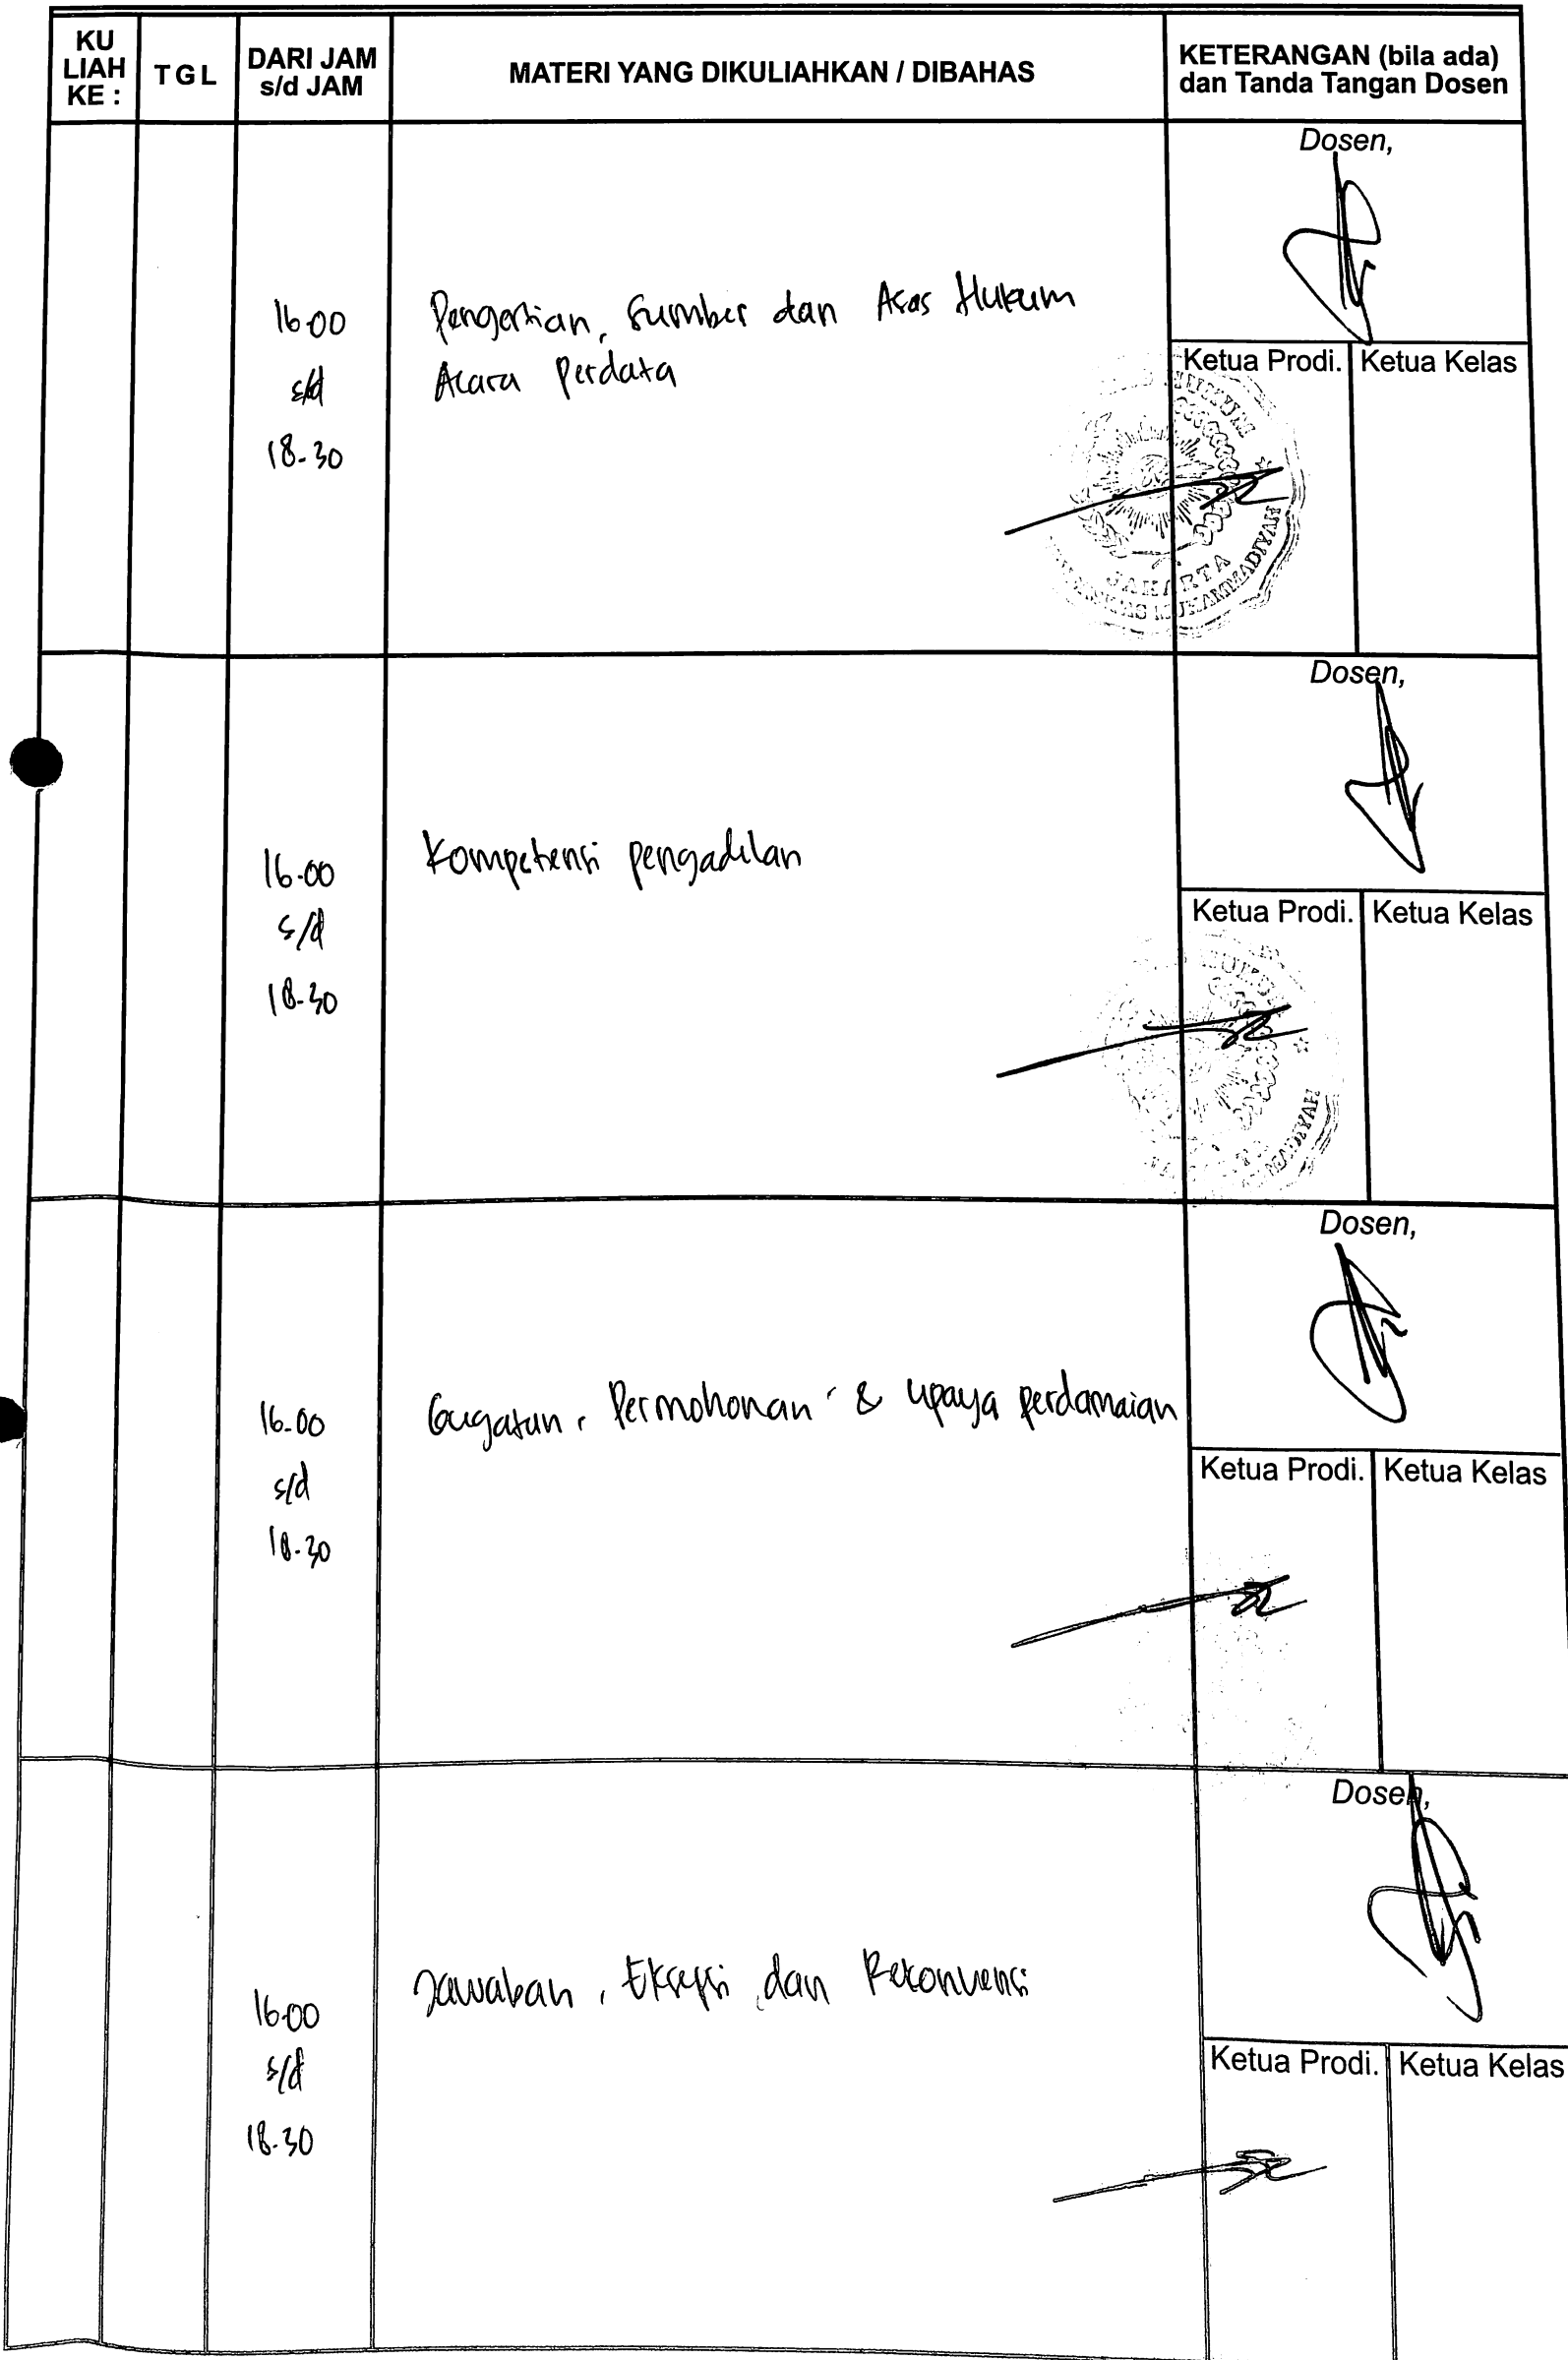 KU LIAH KE :
TGL
DARI JAM s/d JAM
MATERI YANG DIKULIAHKAN / DIBAHAS
KETERANGAN (bila ada) dan Tanda Tangan Dosen
Dosen,
16.00
s/d
18.30
Pengertian, Sumber dan Asas Hukum
Acara Perdata
Ketua Prodi.
Ketua Kelas
JAKARTA
MUHAMMADIYAH
Dosen,
16.00
s/d
18.30
Kompetensi pengadilan
Ketua Prodi.
Ketua Kelas
Dosen,
16.00
s/d
18.30
Gugatan, Permohonan & Upaya perdamaian
Ketua Prodi.
Ketua Kelas
Dosen,
16.00
s/d
18.30
Jawaban, Eksepsi dan Rekonvensi
Ketua Prodi.
Ketua Kelas